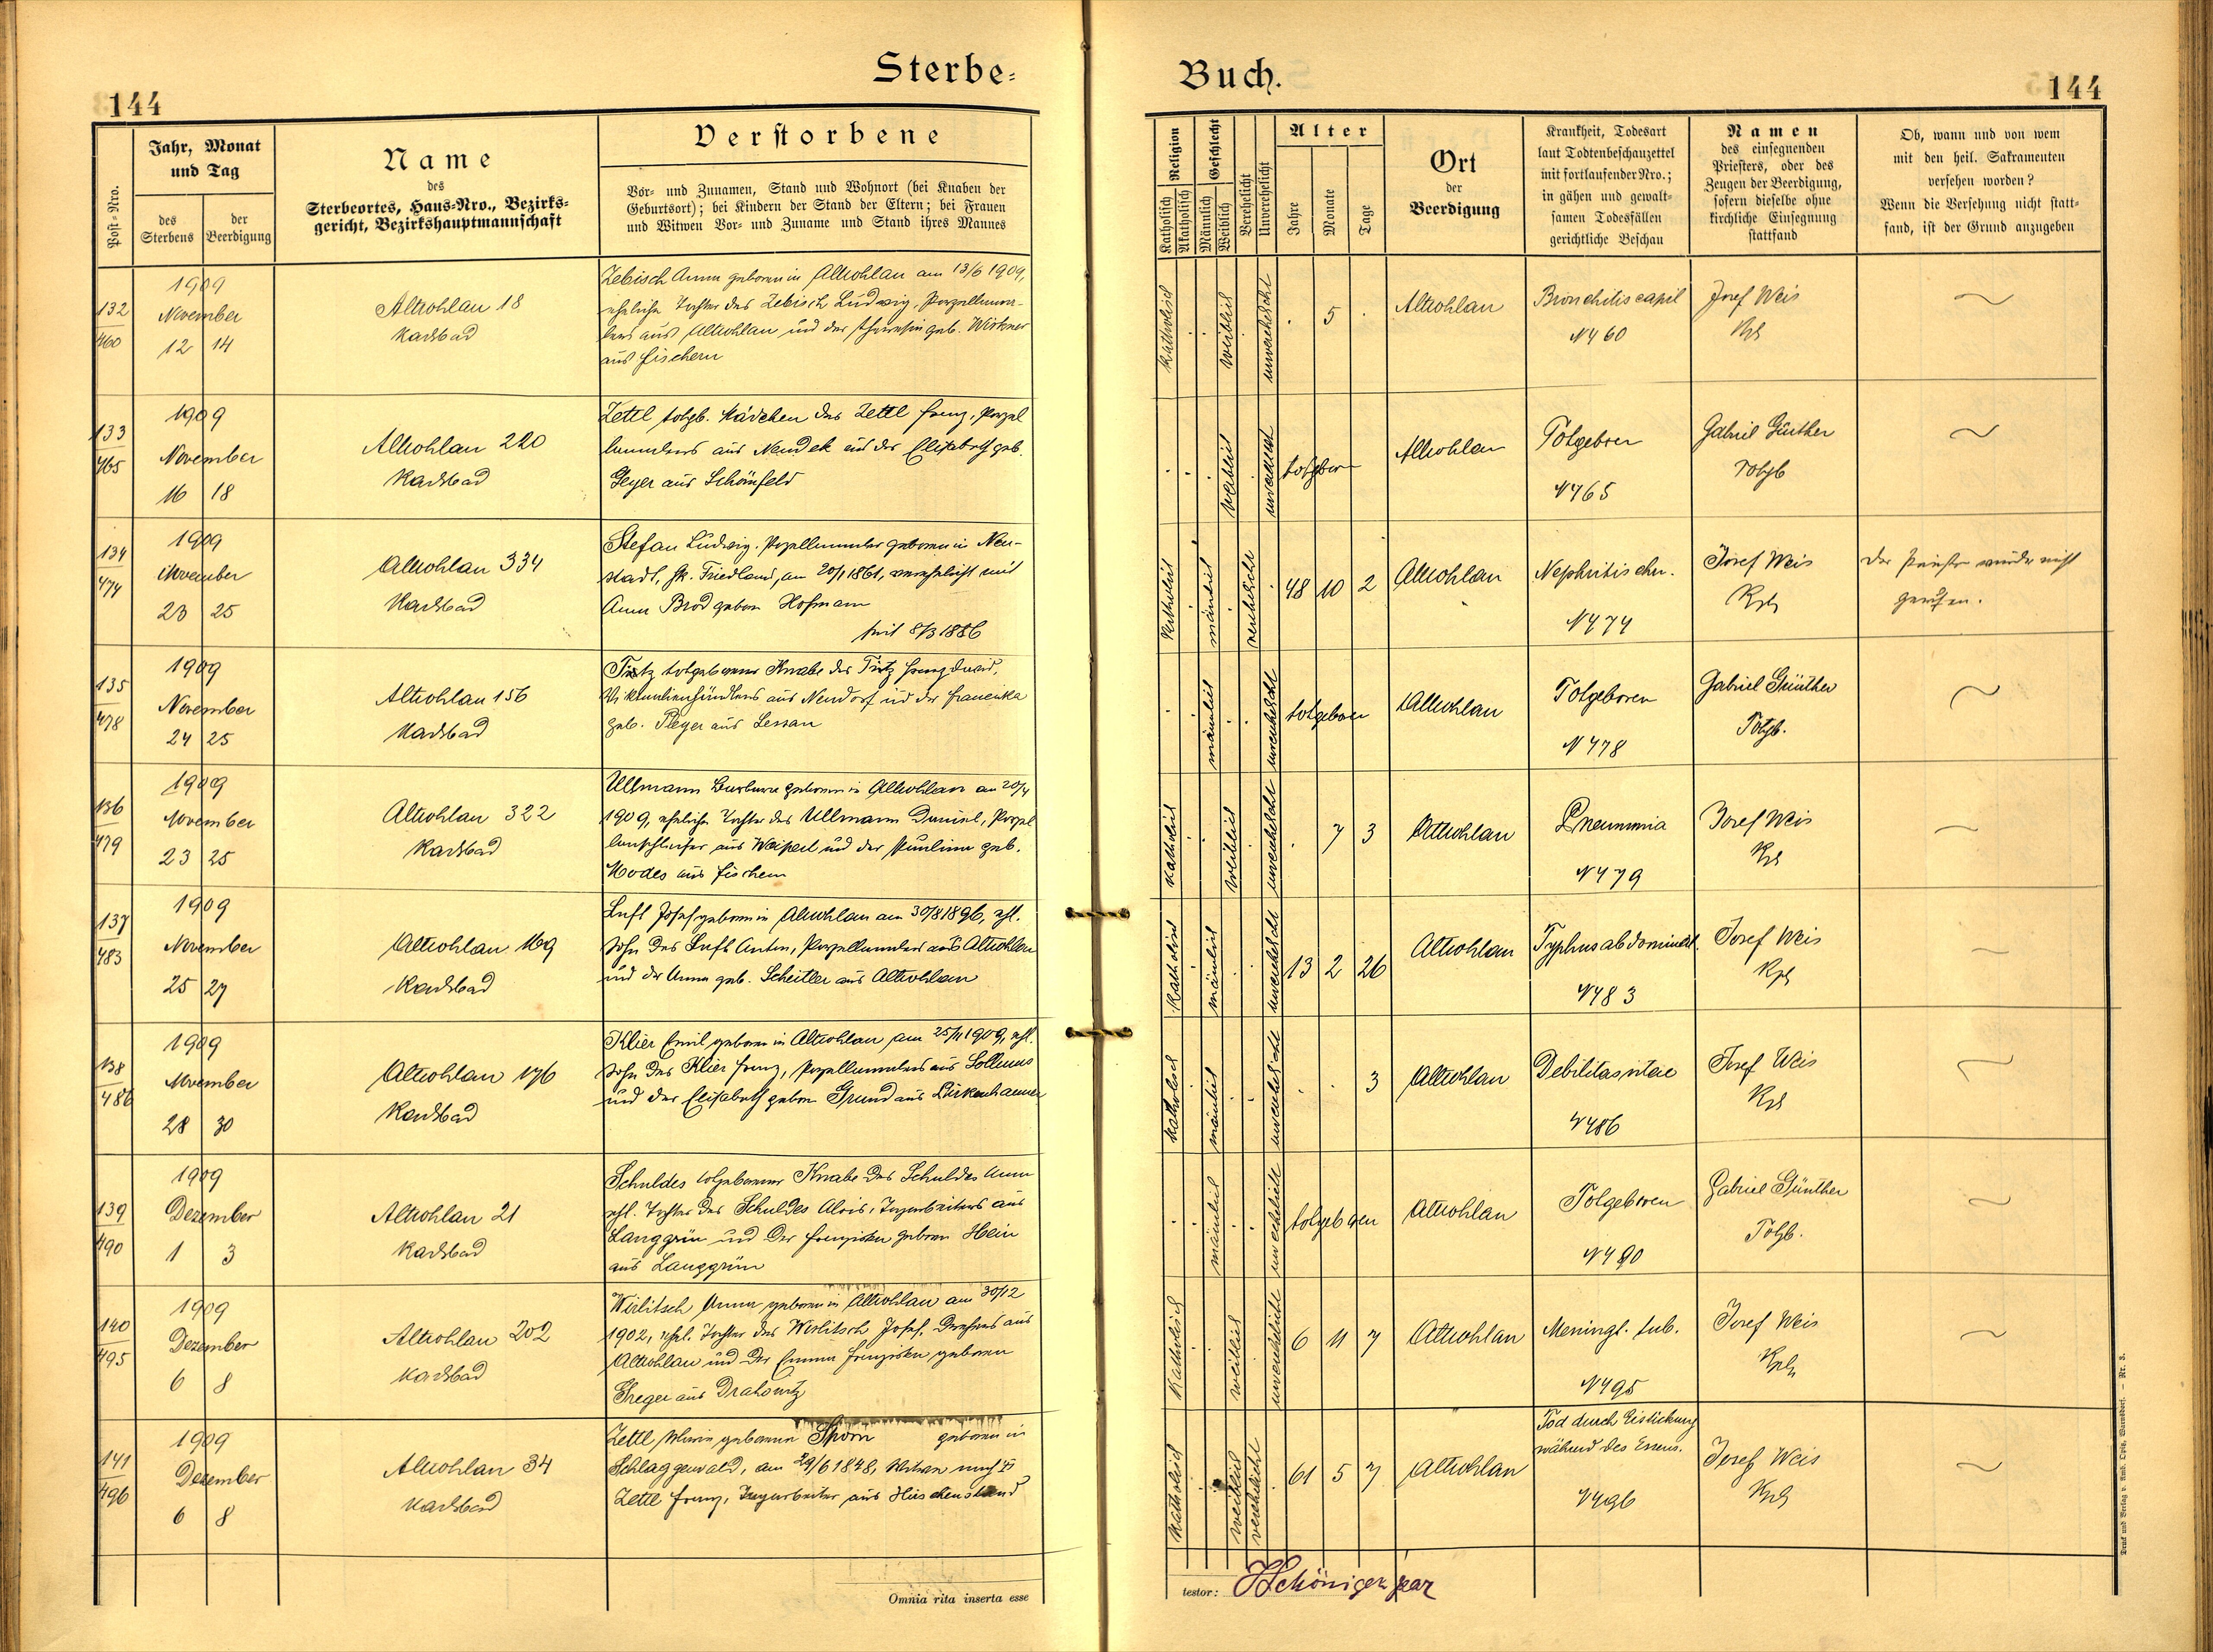 Sterbe-
Buch.
144
144
Post-Nro.
Jahr, Monat
und Tag
des
Sterbens
der
Beerdigung
Name
des
Sterbeortes, Haus-Nro., Bezirks-
gericht, Bezirkshauptmannschaft
Verstorbene
Vor- und Zunamen, Stand und Wohnort (bei Knaben der
Geburtsort); bei Kindern der Stand der Eltern; bei Frauen
und Witwen Vor- und Zuname und Stand ihres Mannes
Religion
Katholisch
Akatholisch
Geschlecht
Männlich
Weiblich
Verehelicht
Unverehelicht
Alter
Jahre
Monate
Tage
Ort
der
Beerdigung
Krankheit, Todesart
laut Todtenbeschauzettel
mit fortlaufender Nro.;
in gähen und gewalt-
samen Todesfällen
gerichtliche Beschau
Namen
des einsegnenden
Priesters, oder des
Zeugen der Beerdigung,
sofern dieselbe ohne
kirchliche Einsegnung
stattfand
Ob, wann und von wem
mit den heil. Sakramenten
versehen worden?
Wenn die Versehung nicht statt-
fand, ist der Grund anzugeben
132
460
1909
November
12 14
Altrohlau 18
Karlsbad
Zebisch Anna geboren in Altrohlau am 13/6 1909,
eheliche Tochter des Zebisch Ludwig, Porzellanma-
lers aus Altrohlau und der Theresia geb. Wirkner
aus Fischern
katholisch
weiblich
unverehelicht
5
Altrohlau
Bronchitis capil
N 460
Josef Weis
Kpl
133
465
1909
November
16 18
Altrohlau 220
Karlsbad
Zettl totgb. Mädchen des Zettl Franz, Porzel
lanmalers aus Neudek und der Elisabeth geb.
Geyer aus Schönfeld
weiblich
unverehelicht
totgeboren
Altrohlau
Totgeboren
N 465
Gabriel Günther
Totgb
134
474
1909
November
23 25
Altrohlau 334
Karlsbad
Stefan Ludwig, Porzellanmaler geboren in Neu-
stadt, Bk. Friedland, am 20/1 1861, verehelicht mit
Anna Brod geboren Hofmann
seit 8/3 1886
katholisch
männlich
verehelicht
48 10 2
Altrohlau
Nephritis chr.
N 474
Josef Weis
Kpl
Der Priester wurde nicht
gerufen.
135
478
1909
November
24 25
Altrohlau 156
Karlsbad
totgeborener Knabe des Franz
Viktualienhändlers aus Neudorf und der Franziska
geb. Pleyer aus Lessau
männlich
unverehelicht
totgeboren
Altrohlau
Totgeboren
N 478
Gabriel Günther
Totgb.
136
479
1909
November
23 25
Altrohlau 322
Karlsbad
Ullmann Barbara geboren in Altrohlau am 20/4
1909, eheliche Tochter des Ullmann Daniel, Porzel
lanschleifer aus Weipert und der Paulina geb.
Modes aus Fischern
katholisch
weiblich
unverehelicht
7 3
Altrohlau
Pneumonia
N 479
Josef Weis
Kpl
137
483
1909
November
25 27
Altrohlau 169
Karlsbad
Luft Josef geboren in Altrohlau am 30/8 1896, ehl.
Sohn des Luft Anton, Porzellanmalers aus Altrohlau
und der Anna geb. Scheitler aus Altrohlau
katholisch
männlich
unverehelicht
13 2 26
Altrohlau
Typhus abdominal.
N 483
Josef Weis
Kpl
138
486
1909
November
28 30
Altrohlau 176
Karlsbad
Klier Emil geboren in Altrohlau am 25/11 1909, ehl.
Sohn des Klier Franz, Porzellanmalers aus Sollmus
und der Elisabeth geboren Grund aus Birkenhammer
katholisch
männlich
unverehelicht
3
Altrohlau
Debilitas vitae
N 486
Josef Weis
Kpl
139
490
1909
Dezember
1 3
Altrohlau 21
Karlsbad
Schuldes totgeborener Knabe der Schuldes Anna
ehl. Tochter des Schuldes Alois, Tagarbeiters aus
Langgrün und der Franziska geboren Hein
aus Langgrün
männlich
unverehelicht
totgeboren
Altrohlau
Totgeboren
N 490
Gabriel Günther
Totgb.
140
495
1909
Dezember
6 8
Altrohlau 202
Karlsbad
Wirlitsch Anna geboren in Altrohlau am 30/12
1902, ehel. Tochter des Wirlitsch Josef, Drehers aus
Altrohlau und der Emma Franziska geboren
Treger aus Drahowitz
katholisch
weiblich
unverehelicht
6 11 7
Altrohlau
Meningt. tub.
N 495
Josef Weis
Kpl
141
496
1909
Dezember
6 8
Altrohlau 34
Karlsbad
Zettl Maria geborene Thorn geboren in
Schlaggenwald, am 29/6 1848, Witwe nach
Zettl Franz, Tagarbeiter aus Hirschenstand
katholisch
weiblich
verehelicht
61 5 7
Altrohlau
Tod durch Erstickung
während des Essens.
N 496
Josef Weis
Kpl
Omnia rita inserta esse
testor:
Druck und Verlag v. Amb. Opitz, Warnsdorf. — Nr. 3.